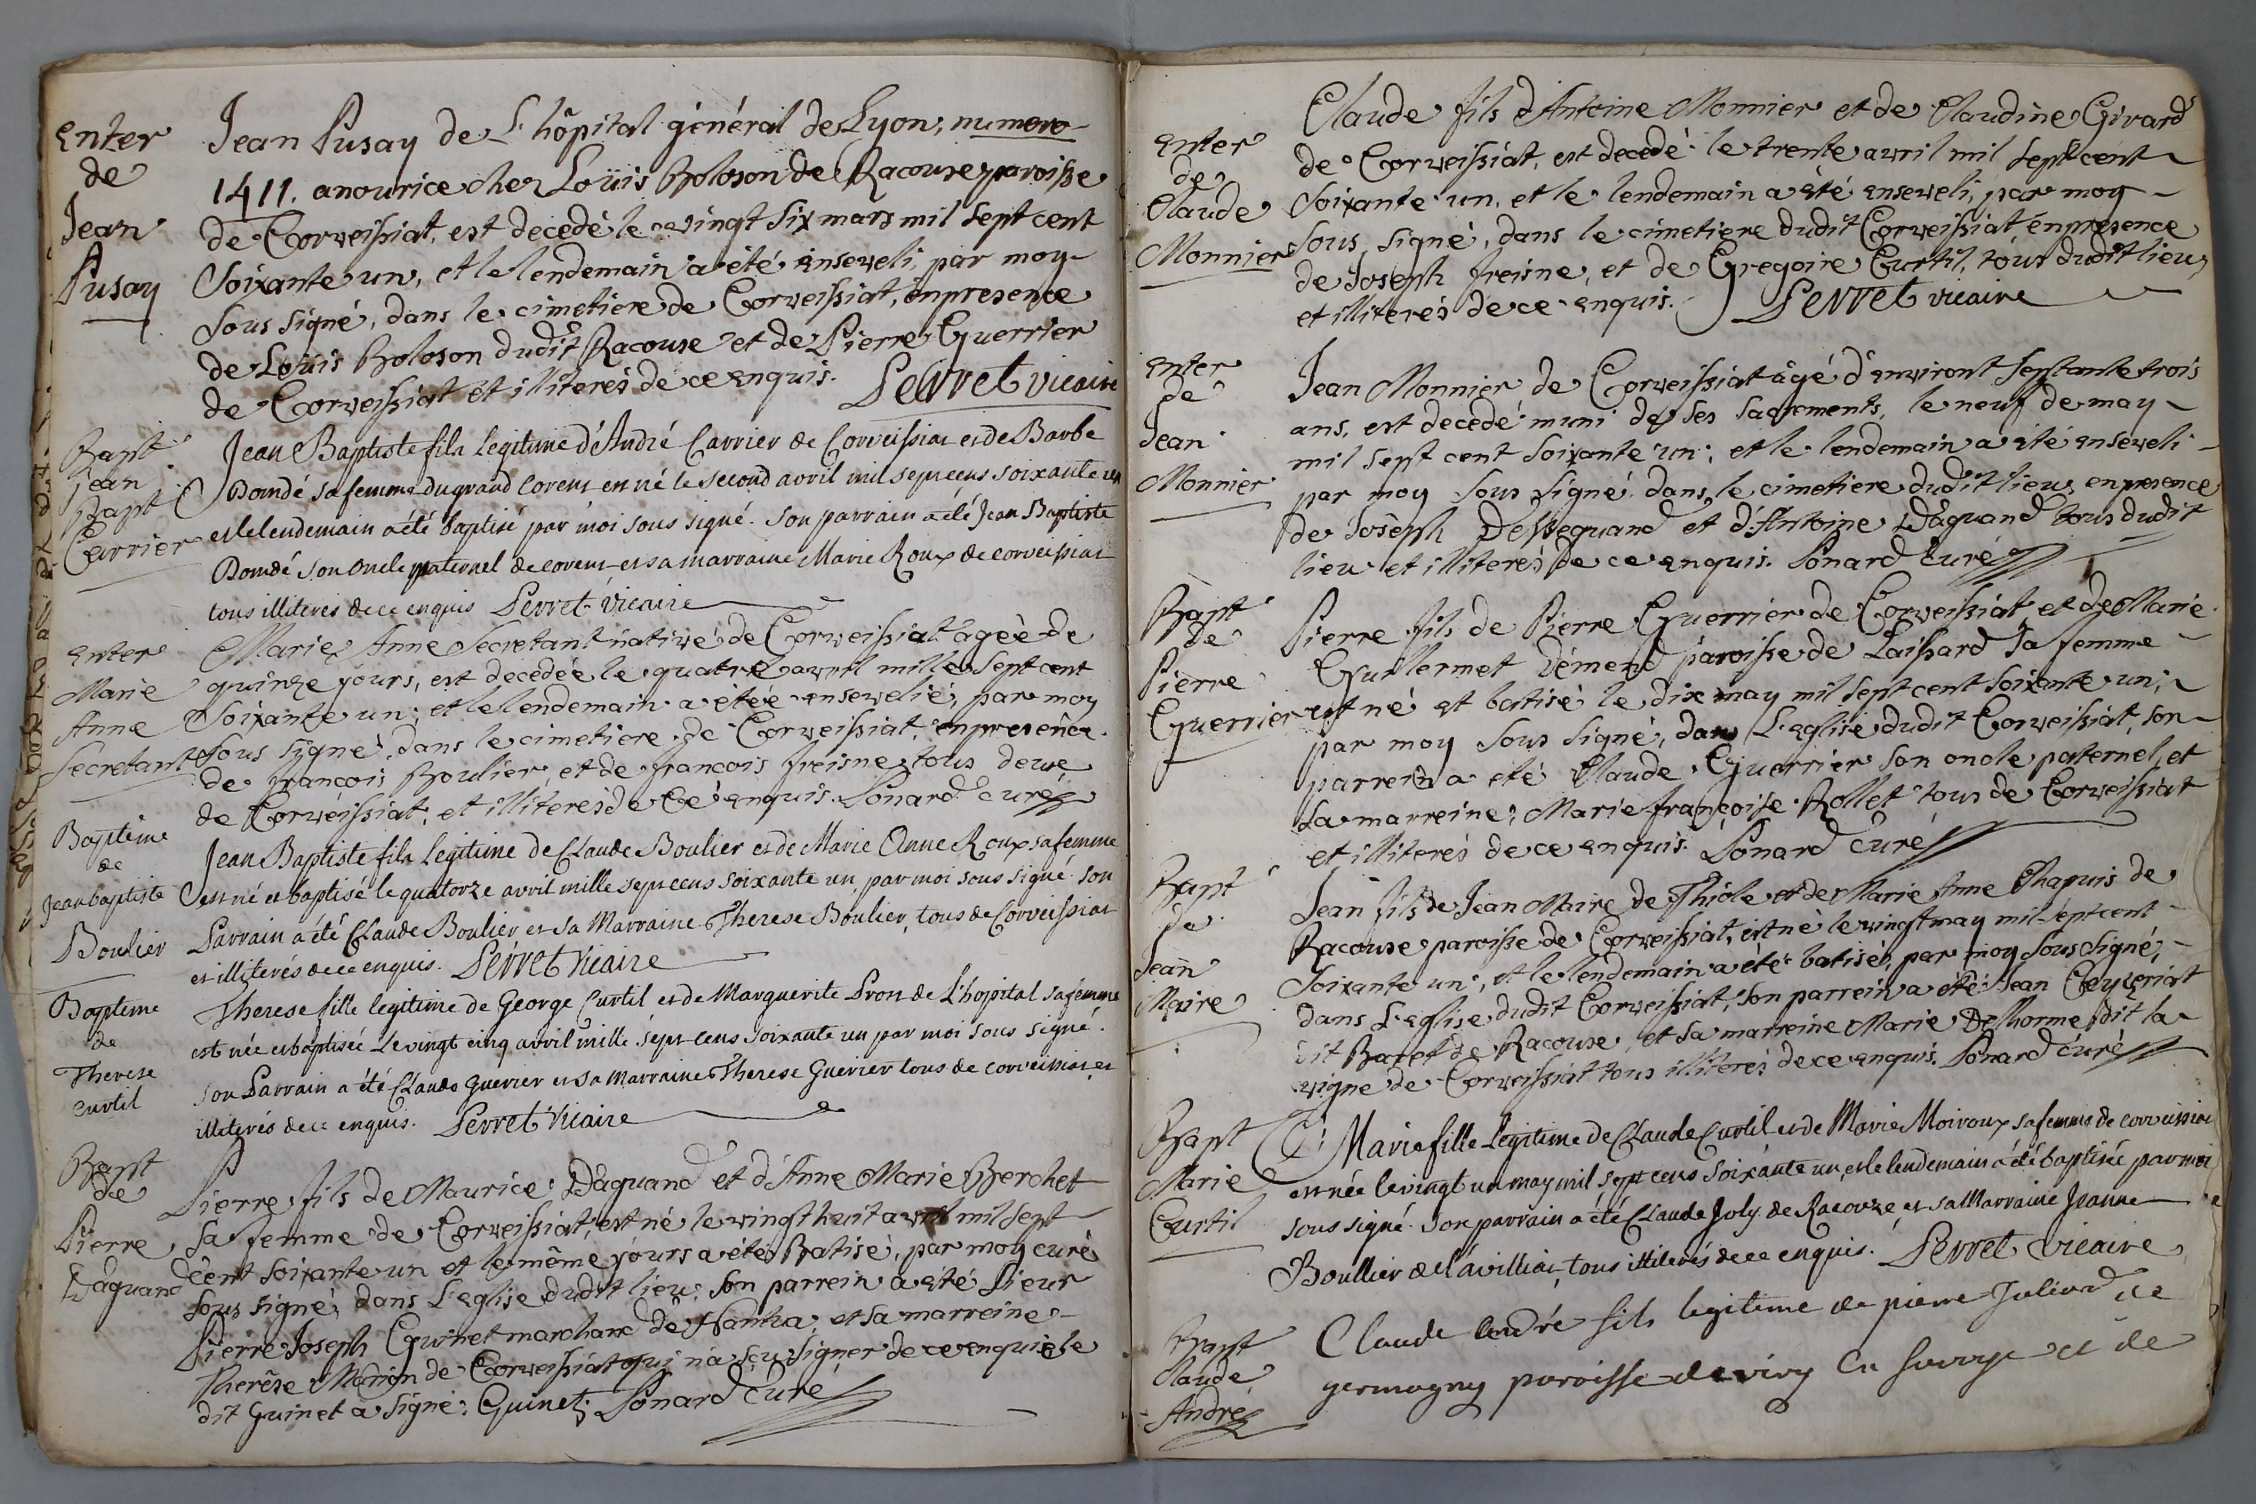 Enter
de
Jean
Pusay
Jean Pusay de L'hôpital général de Lyon, numero
1411. anourice chez Loüis Boloson de Racouze paroisse
de Corveissiat, est decedé le vingt six mars mil sept cent
soixante un, et le lendemain a été enseveli, par moy
sous signé, dans le cimetiere de Corveissiat, en presence
de Loüis Boloson dudit Racouse et de Pierre Guerrier
de Corveissiat et illiterés de ce enquis. Perret vicaire
Bapt
jean
Bapt
Carrier
Jean Baptiste fils legitime d'André Carrier de Corveissiat et de Barbe
Domdé sa femme du grand Corent est né le second avril mil sept cens soixante un
et le lendemain a été baptisé par moi sous signé. son parrain a été Jean Baptiste
Domdé son oncle paternel de corent et sa marraine Marie Roux de corveissiat
tous illiterés de ce enquis Perret vicaire
Enter
Marie
Anne
Secretant
Marie Anne Secretant native de Corveissiat âgée de
quinze yours, est decedée le quatre avril mille sept cent
soixante un; et le lendemain a étée ensevelie, par moy
sous signé, dans le cimetiere de Corveissiat, en presence
de françois Boulier, et de françois freisne tous deux
de Corveissiat, et illiterés de ce enquis. Ponard curé
Baptême
de
Jean baptiste
Boulier
Jean Baptiste fils Legitime de Claude Boulier et de Marie Anne Roux sa femme
est né et baptisé le quatorze avril mille sept cens soixante un, par moi sous signé. son
Parrain a été Claude Boulier et sa Marraine Therese Boulier, tous de Corveissiat
et illiterés de ce enquis. Perret vicaire
Baptême
de
Therese
Curtil
Therese fille legitime de George Curtil et de Marguerite Pron de L'hopital sa femme
est née et baptisée Le vingt cinq avril mille sept cens soixante un par moi sous signé.
son Parrain a été Claude Guerier et sa Marraine Therese Guerier tous de corveissiat et
illiterés de ce enquis. Perret vicaire
Bapt
de
Pierre
Daguand
Pierre fils de Maurice Daguand et d'Anne Marie Berchet
sa femme de Corveissiat, est né le vingt huit avril mil sept
cent soixante un et le même yours a été Batisé, par moy curé
sous signé, dans L'eglise dudit lieu; son parrein a été sieur
Pierre Joseph Guinet marchand de Nantua, et sa marreine
Therêse Monin de Corveissiat qui n'a sçu signer de ce enquise le
dit Guinet a signé: Guinet; Ponard Curé
Enter
de
Claude
Monnier
Claude fils d'Antoine Monnier et de Claudine Girard
de Corveissiat, est decedé le trente avril mil sept cent
soixante un, et le lendemain a été enseveli, par moy
sous signé, dans le cimetiere dudit Corveissiat en presence
de Joseph freisne, et de Gregoire Curtil, tous dudit lieu,
et illiterés de ce enquis. Perret vicaire
Enter
de
Jean
Monnier
Jean Monnier de Corveissiat âgé d'environt septante trois
ans, est decedé muni de ses sacrements, le neuf de may
mil sept cent soixante un; et le lendemain a été enseveli
par moy sous signé, dans le cimetiere dudit lieu, en presence
de Joseph Desseguand et d'Antoine Daguand tous dudit
lieu et illiterés de ce enquis. Ponard Curé
Bapt
de
Pierre
Guerrier
Pierre fils de Pierre Guerrier de Corveissiat et de Marie
Guillermet Démend paroisse de Laissard sa femme
est né et batisé le dix may mil sept cent soixante un;
par moy sous signé, dans L'eglise dudit Corveissiat, son
parrein a eté Claude Guerrier son oncle paternel, et
sa marreine; Marie françoise Rollet tous de Corveissiat
et illiterés de ce enquis. Ponard Curé
Bapt
de
Jean
Maire
Jean fils de Jean Maire de Thiole et de Marie Anne Chapuis de
Racouse paroisse de Corveissiat, est né le vingt may mil sept cent
soixante un; et le lendemain a été batisé, par moy sous signé,
dans L'eglise dudit Corveissiat, son parrein a été Jean Ceyzeriat
dit Baret de Racouse, et sa marreine Marie Delhorme dit la
vigne de Corveissiat tous illiterés de ce enquis. Ponard curé
Bapt
Marie
Curtil
Marie fille Legitime de Claude Curtil et de Marie Moiroux sa femme de corveissiat
est née le vingt un may mil sept cens soixante un, et le lendemain a été baptisée par moi
sous signé. son parrain a été Claude Joly de Racouze et sa Marraine Jeanne
Boullier de Lavilliat, tous illiterés de ce enquis. Perret vicaire
Bapt
Claude
André
Claude André fils legitime de pierre Juliard de
germagny paroisse de viry en et de